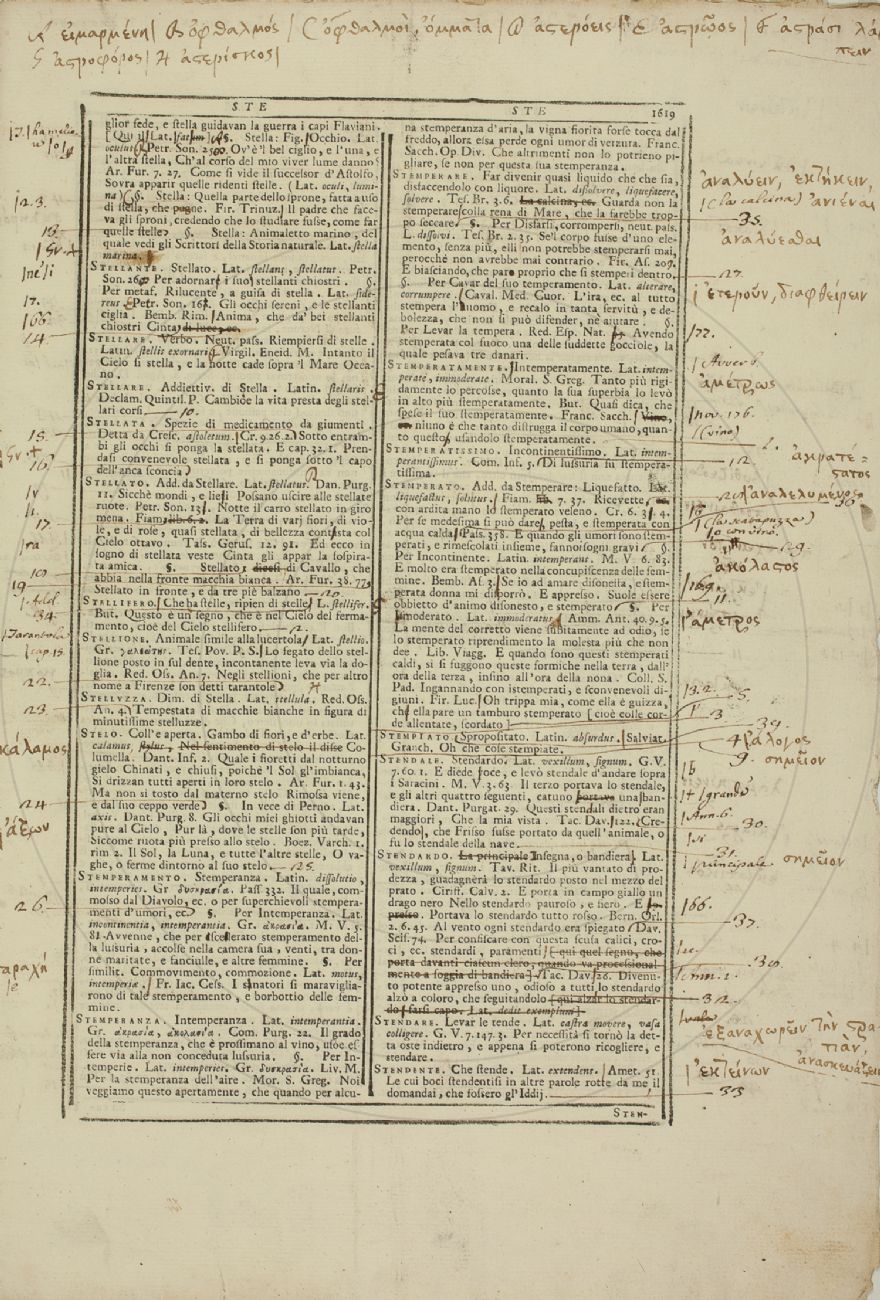 A εἱμαρμένη | B ὀφθαλμός | C ὀφθαλμοὶ, ὄμματα | D ἀστερόεις | E ἀστρῷος | F ἀστράσι λάμ
πειν
G ἀστροφόρος | H ἀστερίσκος |
STE
STE 1619
glior fede, e stella guidavan la guerra i capi Flaviani.
[Qui Lat. fatum] §. Stella: Fig. Occhio. Lat.
oculus. Petr. Son. 2 Ov'è 'l bel ciglio, e l'una, e
l'altra stella, Ch'al corso del mio viver lume danno?
Ar. Fur. 7. 27. Come si vide il successor d'Astolfo,
Sovra apparir quelle ridenti stelle. (Lat. oculi, lumi-
na) §. Stella: Quella parte dello sprone, fatta a uso
di stella, che pugne. Fir. Trinuz. Il padre che face-
va gli sproni, credendo che lo studiare fusse, come far
quelle stelle §. Stella: Animaletto marino, del
quale vedi gli Scrittori della Storia naturale. Lat. stella
marina.
STELLANTE. Stellato. Lat. stellans, stellatus. Petr.
Son. 26 Per adornar i suoi stellanti chiostri. §.
Per metaf. Rilucente, a guisa di stella. Lat. side-
reus Petr. Son. 167. Gli occhi sereni, e le stellanti
ciglia. Bemb. Rim. Anima, che da' bei stellanti
chiostri Cinta di luce, ec.
STELLARE. Verbo. Neut. pass. Riempiersi di stelle.
Latin. stellis exornari. Virgil. Eneid. M. Intanto il
Cielo si stella, e la notte cade sopra 'l Mare Ocea-
no.
STELLARE. Addiettiv. di Stella. Latin. stellaris.
Declam. Quintil. P. Cambiòe la vita presta degli stel-
lari corsi. 10.
STELLATA. Spezie di medicamento da giumenti.
Detta da Cresc. astoletum. Cr. 9. 26. 2. Sotto entram-
bi gli occhi si ponga la stellata. E cap. 32. 1. Pren-
dasi convenevole stellata, e si ponga sotto 'l capo
dell'anca sconcia
STELLATO. Add. da Stellare. Lat. stellatus. Dan. Purg.
11. Sicchè mondi, e lievi Possano uscire alle stellate
ruote. Petr. Son. 13 Notte il carro stellato in giro
mena. Fiam. lib. 6. 2. La Terra di varj fiori, di vio-
le, e di rose, quasi stellata, di bellezza contasta col
Cielo ottavo. Tass. Gerus. 12. 91. Ed ecco in
sogno di stellata veste Cinta gli appar la sospira-
ta amica. §. Stellato, dicesi di Cavallo, che
abbia nella fronte macchia bianca. Ar. Fur. 38. 77
Stellato in fronte, e da tre piè balzano 20.
STELLIFERO. Che ha stelle, ripien di stelle. L. stellifer.
But. Questo è un segno, che è nel Cielo del ferma-
mento, cioè del Cielo stellifero. 12.
STELLIONE. Animale simile alla lucertola. Lat. stellio.
Gr. γαλεώτης. Tes. Pov. P. S. Lo fegato dello stel-
lione posto in sul dente, incontanente leva via la do-
glia. Red. Oss. An. 7. Negli stellioni, che per altro
nome a Firenze son detti tarantole H
STELLUZZA. Dim. di Stella. Lat. stellula. Red. Oss.
An. 4. Tempestata di macchie bianche in figura di
minutissime stelluzze.
STELO. Coll'e aperta. Gambo di fiori, e d'erbe. Lat.
calamus, stylus, Nel sentimento di stelo il disse Co-
lumella. Dant. Inf. 2. Quale i fioretti dal notturno
gielo Chinati, e chiusi, poichè 'l Sol gl'imbianca,
Si drizzan tutti aperti in loro stelo. Ar. Fur. 1. 43.
Ma non sì tosto dal materno stelo Rimossa viene,
e dal suo ceppo verde §. In vece di Perno. Lat.
axis. Dant. Purg. 8. Gli occhi miei ghiotti andavan
pure al Cielo, Pur là, dove le stelle son più tarde,
Siccome ruota più presso allo stelo. Boez. Varch. 1.
rim 2. Il Sol, la Luna, e tutte l'altre stelle, O va-
ghe, o ferme dintorno al suo stelo. 25.
STEMPERAMENTO. Stemperanza. Latin. dissolutio,
intemperies. Gr δυσκρασία. Pass. 332. Il quale, com-
mosso dal Diavolo, ec. o per superchievoli stempera-
menti d'umori, ec. §. Per Intemperanza. Lat.
incontinentia, intemperantia. Gr. ἀκρασία. M. V. 5.
81. Avvenne, che per iscellerato stemperamento del-
la lussuria, accolse nella camera sua, venti, tra don-
ne maritate, e fanciulle, e altre femmine. §. Per
similit. Commovimento, commozione. Lat. motus,
intemperiæ. Fr. Iac. Cess. I sanatori si maraviglia-
rono di tale stemperamento, e borbottio delle fem-
mine.
STEMPERANZA. Intemperanza. Lat. intemperantia.
Gr. ἀκρασία, ἀκολασία. Com. Purg. 22. Il grado
della stemperanza, che è prossimano al vino, usoe es-
sere via alla non conceduta lussuria. §. Per In-
temperie. Lat. intemperies. Gr. δυσκρασία. Liv. M.
Per la stemperanza dell'aire. Mor. S. Greg. Noi
veggiamo questo apertamente, che quando per alcu-
na stemperanza d'aria, la vigna fiorita forse tocca dal
freddo, allora essa perde ogni umor di verzura. Franc.
Sacch. Op. Div. Che altrimenti non lo potrieno pi-
gliare, se non per questa sua stemperanza.
STEMPERARE. Far divenir quasi liquido che che sia,
disfaccendolo con liquore. Lat. dissolvere, liquefacere,
solvere. Tes. Br. 3. 6. La calcina, ec. Guarda non la
stemperare colla rena di Mare, che la farebbe trop-
po seccare §. Per Disfarsi, corrompersi, neut. pass.
L. dissolvi. Tes. Br. 2. 35. Se 'l corpo fusse d'uno ele-
mento, senza più, elli non potrebbe stemperarsi mai,
perocchè non avrebbe mai contrario. Fic. As. 209.
E biasciando, che pare proprio che si stemperi dentro.
§. Per Cavar del suo temperamento. Lat. alterare,
corrumpere. Caval. Med. Cuor. L'ira, ec. al tutto
stempera l'huomo, e recalo in tanta servitù, e de-
bolezza, che non si può difender, nè aitare. §.
Per Levar la tempera. Red. Esp. Nat. Avendo
stemperata col fuoco una delle suddette gocciole, la
quale pesava tre danari.
STEMPERATAMENTE. Intemperatamente. Lat. intem-
perate, immoderate. Moral. S. Greg. Tanto più rigi-
damente lo percosse, quanto la sua superbia lo levò
in alto più stemperatamente. But. Quasi dica, che
spese il suo stemperatamente. Franc. Sacch. Vino,
niuno è che tanto distrugga il corpo umano, quan-
to questo, usandolo stemperatamente.
STEMPERATISSIMO. Incontinentissimo. Lat. intem-
perantissimus. Com. Inf. 5. Di lussuria fu stempera-
tissima.
STEMPERATO. Add. da Stemperare: Liquefatto. Lat.
liquefactus, solutus. Fiam. lib. 7. 37. Ricevette,
con ardita mano lo stemperato veleno. Cr. 6. 3. 4.
Per se medesima si può dare, pesta, e stemperata con
acqua calda Pass. 358. E quando gli umori sono stem-
perati, e rimescolati insieme, fanno i sogni gravi §.
Per Incontinente. Latin. intemperans. M. V. 6. 83.
E molto era stemperato nella concupiscenza delle fem-
mine. Bemb. As. 3. Se io ad amare disonesta, e stem-
perata donna mi disporrò. E appresso. Suole essere
obbietto d'animo disonesto, e stemperato §. Per
Immoderato. Lat. immoderatus. Amm. Ant. 40. 9. 5.
La mente del corretto viene subitamente ad odio, se
lo stemperato riprendimento la molesta più che non
dee. Lib. Viagg. E quando sono questi stemperati
caldi, sì si fuggono queste formiche nella terra, dall'
ora della terza, insino all'ora della nona. Coll. S.
Pad. Ingannando con istemperati, e sconvenevoli di-
giuni. Fir. Luc. Oh trippa mia, come ella è guizza,
che ella pare un tamburo stemperato [cioè colle cor-
de allentate, scordato
STEMPIATO. Spropositato. Latin. absurdus. Salviat.
Granch. Oh che cose stempiate.
STENDALE. Stendardo. Lat. vexillum, signum. G. V.
7. 60. 1. E diede foce, e levò stendale d'andare sopra
i Saracini. M. V. 3. 63. Il terzo portava lo stendale,
e gli altri quattro seguenti, catuno portava una ban-
diera. Dant. Purgat. 29. Questi stendali dietro eran
maggiori, Che la mia vista. Tac. Dav. 122. Cre-
dendo, che Frisso fusse portato da quell'animale, o
fu lo stendale della nave.
STENDARDO. La principale Insegna, o bandiera. Lat.
vexillum, signum. Tav. Rit. Il più vantato di pro-
dezza, guadagnerà lo stendardo posto nel mezzo del
prato. Ciriff. Calv. 2. E porta in campo giallo un
drago nero Nello stendardo pauroso, e fiero. E ap-
presso. Portava lo stendardo tutto rosso. Bern. Orl.
2. 6. 45. Al vento ogni stendardo era spiegato. Dav.
Scis. 74. Per confiscare con questa scusa calici, cro-
ci, ec. stendardi, paramenti. [qui quel segno, che
porta davanti ciascun clero, quando va processional-
mente a foggia di bandiera.] Tac. Dav. 26. Divenu-
to potente appresso uno, odioso a tutti, lo stendardo
alzò a coloro, che seguitandolo [qui alzar lo stendar-
do farsi capo. Lat. dedit exemplum]
STENDARE. Levar le tende. Lat. castra movere, vasa
colligere. G. V. 7. 147. 3. Per necessità si tornò la det-
ta oste indietro, e appena si poterono ricogliere, e
stendare.
STENDENTE. Che stende. Lat. extendens. Amet. 51.
Le cui boci stendentisi in altre parole rotte da me il
domandai, che fossero gl'Iddij.
STEN-
17.
166.
14
15.
17.
19
34.
Tarantola
cap. 15.
22.
23
κάλαμος
24
ἄξων
26.
ταραχή
ἀναλύειν, ἐκτήκειν,
(la calcina) ἀνιέναι
35.
ἀναλύεσθαι
27.
ἑτεροῦν, διαφθείρειν
122.
Avverb.
ἀμέτρως
nov. 176.
(vino)
12.
ἀκρατέ-
στατος
ἀναλελυμένος
ἀκόλαστος
169.
11.
ἄμετρος
13. 2.
3
39.
ἄλογος
9. σημεῖον
grandi
Ann. 6.
30.
31.
principale. σημεῖον
166.
37.
30
32
ἐξαναχωρεῖν τὴν στρα-
τιὰν,
ἀνασκευάζειν
ἐκτείνων
33